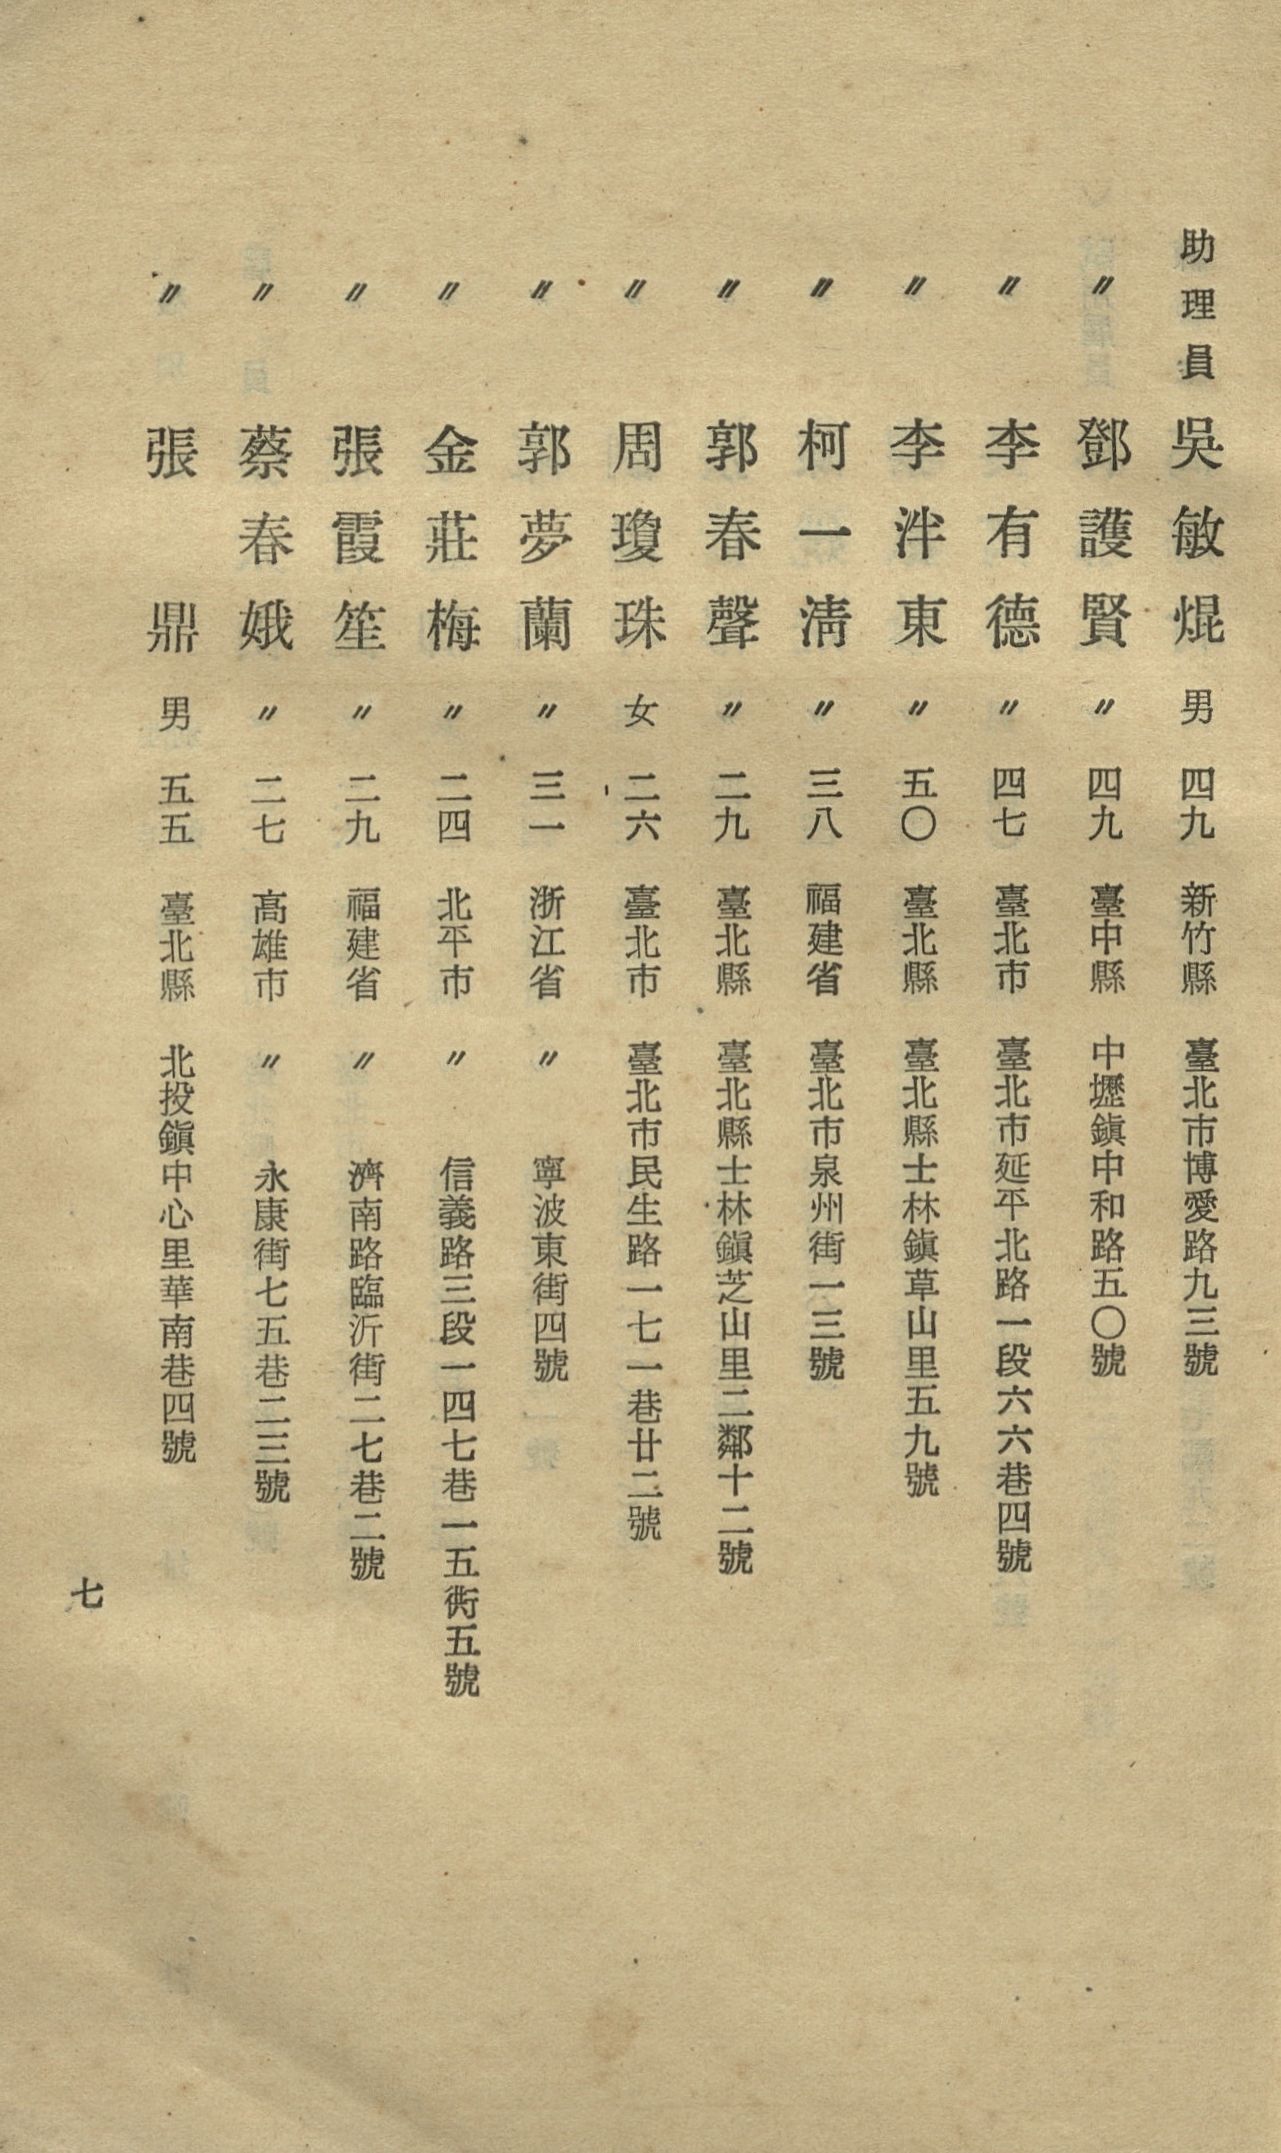 助理員 吳敏焜 男 四九 新竹縣 臺北市博愛路九三號
〃 鄧護賢 〃 四九 臺中縣 中壢鎭中和路五〇號
〃 李有德 〃 四七 臺北市 臺北市延平北路一段六六巷四號
〃 李泮東 〃 五〇 臺北縣 臺北縣士林鎭草山里五九號
〃 柯一淸 〃 三八 福建省 臺北市泉州街一三號
〃 郭春聲 〃 二九 臺北縣 臺北縣士林鎭芝山里二鄰十二號
〃 周瓊珠 女 二六 臺北市 臺北市民生路一七一巷廿二號
〃 郭夢蘭 〃 三一 浙江省 〃 寧波東街四號
〃 金莊梅 〃 二四 北平市 〃 信義路三段一四七巷一五衖五號
〃 張霞笙 〃 二九 福建省 〃 濟南路臨沂街二七巷二號
〃 蔡春娥 〃 二七 高雄市 〃 永康街七五巷二三號
〃 張鼎 男 五五 臺北縣 北投鎭中心里華南巷四號
七